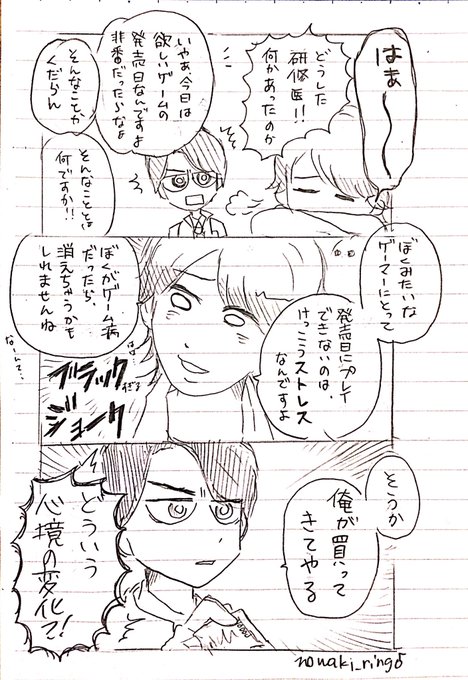 はぁ〜
どうした
研修医!!
何かあったのか
いやぁ、今日は
欲しいゲームの
発売日なんですよ
非番だったらなぁ
そんなことか
くだらん
そんなこととは
何ですか!!
ぼくみたいな
ゲーマーにとって
発売日にプレイ
できないのは、
けっこうストレス
なんですよ
ぼくがゲーム病
だったら、
消えちゃうかも
しれませんね
なんて…
ブラック
ジョーク
すぎる
そうか
俺が買って
きてやる
どういう
心境の変化で!
nowaki_ringo